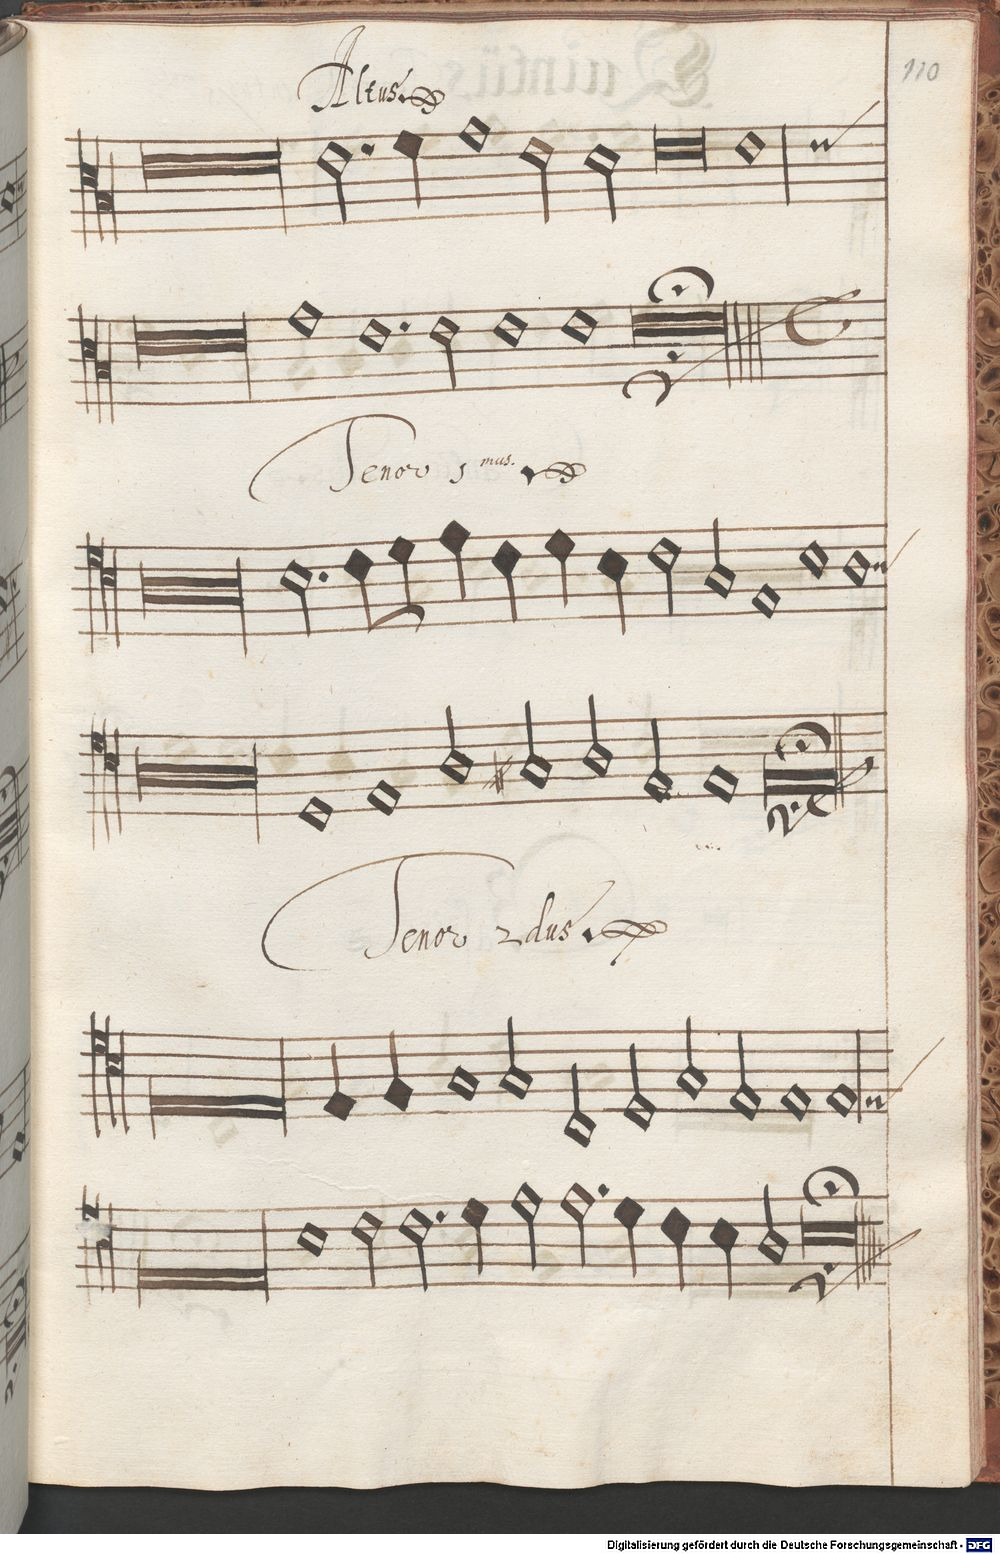 110
Altus
Tenor 1mus.
Tenor 2dus
Digitalisierung gefördert durch die Deutsche Forschungsgemeinschaft - DFG